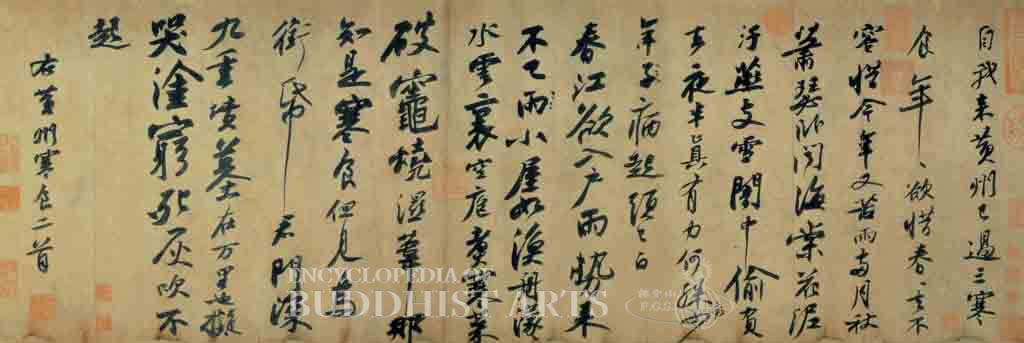 自我来黄州已過三寒
食年〻欲惜春〻去不
容惜今年又苦雨兩月秋
蕭瑟卧聞海棠花泥
汙燕支雪闇中偷負
去夜半真有力何殊
年子病起頭已白
春江欲入戶雨勢来
不已雨小屋如漁舟濛
水雲裏空庖煮寒菜
破竈燒濕葦那
知是寒食但見烏
銜帋君門深
九重墳墓在万里也擬
哭塗窮死灰吹不
起
右黄州寒食二首
ENCYCLOPEDIA OF
BUDDHIST ARTS